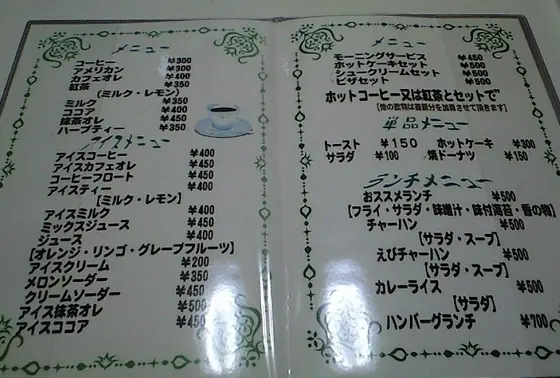 メニュー
コーヒー ¥300
アメリカン ¥300
カフェオレ ¥400
紅茶 ¥350
(ミルク・レモン)
ミルク ¥350
ココア ¥400
抹茶オレ ¥450
ハーブティー ¥350
アイスメニュー
アイスコーヒー ¥400
アイスカフェオレ ¥450
コーヒーフロート ¥450
アイスティー ¥400
[ミルク・レモン]
アイスミルク ¥400
ミックスジュース ¥450
ジュース ¥400
[オレンジ・リンゴ・グレープフルーツ]
アイスクリーム ¥200
メロンソーダー ¥350
クリームソーダー ¥450
アイス抹茶オレ ¥500
アイスココア ¥450
メニュー
モーニングサービス ¥450
ホットケーキセット ¥500
シュークリームセット ¥500
ピザセット ¥500
ホットコーヒー又は紅茶とセットで"
[他の飲物は差額分を加算させて頂きます]
単品メニュー
トースト ¥150 ホットケーキ ¥300
サラダ ¥100 焼ドーナツ ¥150
ランチメニュー
おススメランチ ¥500
[フライ・サラダ・味噌汁・味付海苔・香の物]
チャーハン ¥500
[サラダ・スープ]
えびチャーハン ¥500
[サラダ・スープ]
カレーライス ¥500
[サラダ]
ハンバーグランチ ¥700